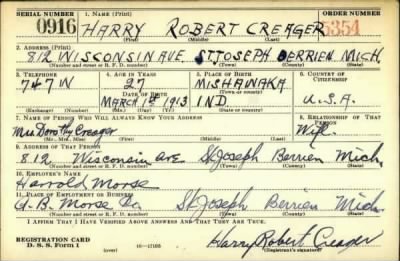 SERIAL NUMBER 1. NAME (Print) ORDER NUMBER
0916 HARRY ROBERT CREAGER 5354
(First) (Middle) (Last)
2. ADDRESS (Print)
812 WISCONSIN AVE. ST JOSEPH BERRIEN MICH.
(Number and street or R. F. D. number) (Town) (County) (State)
3. TELEPHONE 4. AGE IN YEARS 5. PLACE OF BIRTH 6. COUNTRY OF CITIZENSHIP
747W 27 MISHAWAKA
DATE OF BIRTH (Town or county)
MARCH 1st 1913 IND. U.S.A.
(Exchange) (Number) (Mo.) (Day) (Yr.) (State or country)
7. NAME OF PERSON WHO WILL ALWAYS KNOW YOUR ADDRESS 8. RELATIONSHIP OF THAT PERSON
Mrs Dorothy Creager Wife
(Mr., Mrs., Miss) (First) (Middle) (Last)
9. ADDRESS OF THAT PERSON
812 Wisconsin Ave St Joseph Berrien Mich.
(Number and street or R. F. D. number) (Town) (County) (State)
10. EMPLOYER'S NAME
Harrold Morse
11. PLACE OF EMPLOYMENT OR BUSINESS
A. B. Morse Co St Joseph Berrien Mich
(Number and street or R. F. D. number) (Town) (County) (State)
I AFFIRM THAT I HAVE VERIFIED ABOVE ANSWERS AND THAT THEY ARE TRUE.
REGISTRATION CARD
D. S. S. Form 1 (over) 16—17105 Harry Robert Creager
(Registrant's signature)